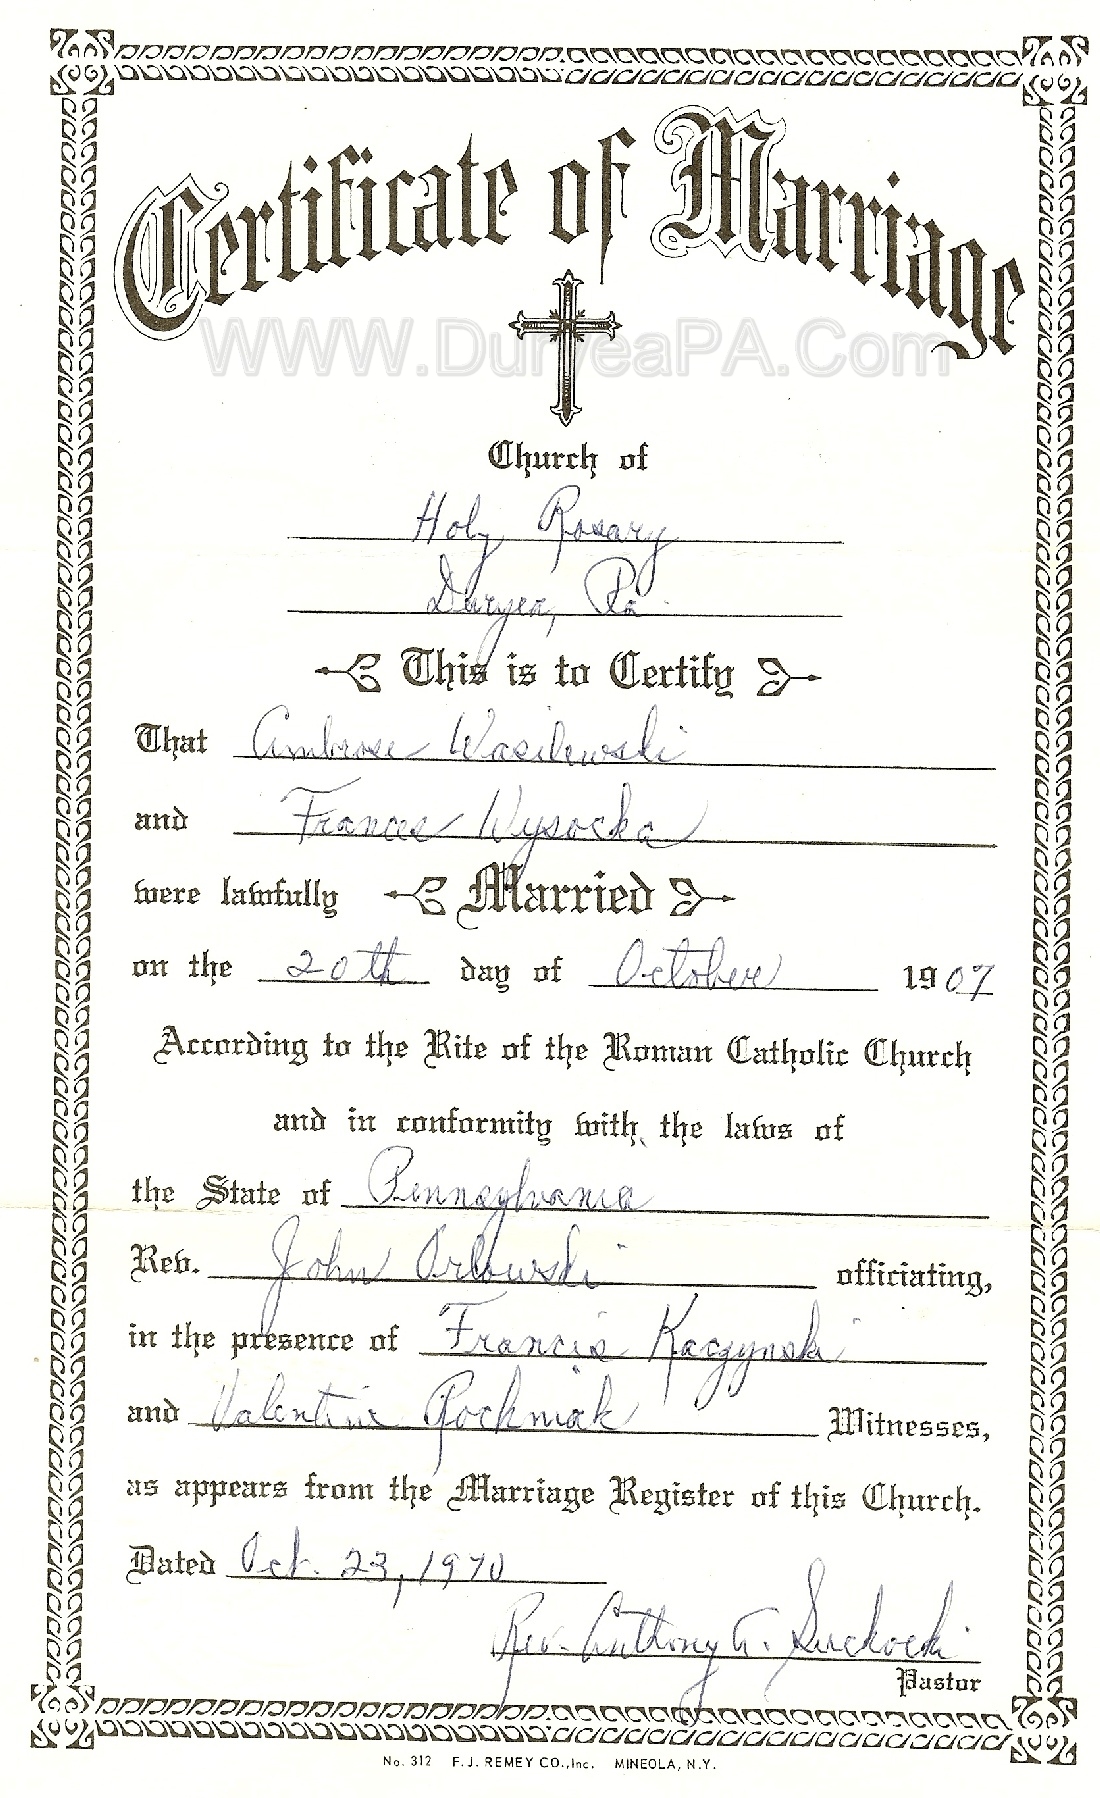 Certificate of Marriage
WWW.DuryeaPA.Com
Church of
Holy Rosary
Duryea, Pa.
This is to Certify
That Ambrose Wasilewski
and Frances Wysocka
were lawfully Married
on the 20th day of October 1907
According to the Rite of the Roman Catholic Church
and in conformity with the laws of
the State of Pennsylvania
Rev. John Orlowski officiating,
in the presence of Francis Kaczynski
and Valentine Rochniak Witnesses,
as appears from the Marriage Register of this Church.
Dated Oct. 23, 1970
Rev. Anthony A. Suchocki
Pastor
No. 312 F. J. REMEY CO., Inc. MINEOLA, N.Y.